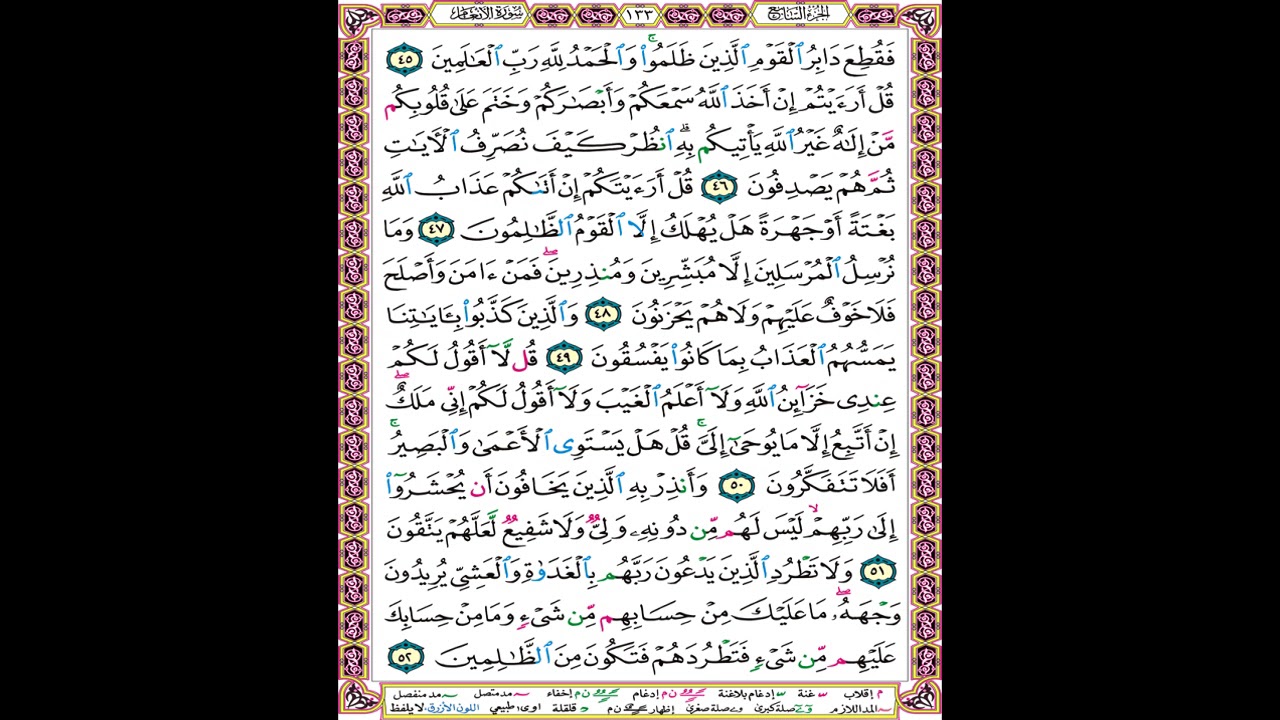 الجزء السابع ١٣٣ سورة الأنعام
فَقُطِعَ دَابِرُ ٱلْقَوْمِ ٱلَّذِينَ ظَلَمُوا۟ ۚ وَٱلْحَمْدُ لِلَّهِ رَبِّ ٱلْعَـٰلَمِينَ ٤٥
قُلْ أَرَءَيْتُمْ إِنْ أَخَذَ ٱللَّهُ سَمْعَكُمْ وَأَبْصَـٰرَكُمْ وَخَتَمَ عَلَىٰ قُلُوبِكُم
مَّنْ إِلَـٰهٌ غَيْرُ ٱللَّهِ يَأْتِيكُم بِهِ ۗ ٱنظُرْ كَيْفَ نُصَرِّفُ ٱلْـَٔايَـٰتِ
ثُمَّ هُمْ يَصْدِفُونَ ٤٦ قُلْ أَرَءَيْتَكُمْ إِنْ أَتَىٰكُمْ عَذَابُ ٱللَّهِ
بَغْتَةً أَوْ جَهْرَةً هَلْ يُهْلَكُ إِلَّا ٱلْقَوْمُ ٱلظَّـٰلِمُونَ ٤٧ وَمَا
نُرْسِلُ ٱلْمُرْسَلِينَ إِلَّا مُبَشِّرِينَ وَمُنذِرِينَ ۖ فَمَنْ ءَامَنَ وَأَصْلَحَ
فَلَا خَوْفٌ عَلَيْهِمْ وَلَا هُمْ يَحْزَنُونَ ٤٨ وَٱلَّذِينَ كَذَّبُوا۟ بِـَٔايَـٰتِنَا
يَمَسُّهُمُ ٱلْعَذَابُ بِمَا كَانُوا۟ يَفْسُقُونَ ٤٩ قُل لَّآ أَقُولُ لَكُمْ
عِندِى خَزَآئِنُ ٱللَّهِ وَلَآ أَعْلَمُ ٱلْغَيْبَ وَلَآ أَقُولُ لَكُمْ إِنِّى مَلَكٌ ۖ
إِنْ أَتَّبِعُ إِلَّا مَا يُوحَىٰٓ إِلَىَّ ۚ قُلْ هَلْ يَسْتَوِى ٱلْأَعْمَىٰ وَٱلْبَصِيرُ ۚ
أَفَلَا تَتَفَكَّرُونَ ٥٠ وَأَنذِرْ بِهِ ٱلَّذِينَ يَخَافُونَ أَن يُحْشَرُوٓا۟
إِلَىٰ رَبِّهِمْ ۙ لَيْسَ لَهُم مِّن دُونِهِۦ وَلِىٌّ وَلَا شَفِيعٌ لَّعَلَّهُمْ يَتَّقُونَ
٥١ وَلَا تَطْرُدِ ٱلَّذِينَ يَدْعُونَ رَبَّهُم بِٱلْغَدَوٰةِ وَٱلْعَشِىِّ يُرِيدُونَ
وَجْهَهُۥ ۖ مَا عَلَيْكَ مِنْ حِسَابِهِم مِّن شَىْءٍ وَمَا مِنْ حِسَابِكَ
عَلَيْهِم مِّن شَىْءٍ فَتَطْرُدَهُمْ فَتَكُونَ مِنَ ٱلظَّـٰلِمِينَ ٥٢
م إقلاب غنة إدغام بلاغنة ن م إدغام ن م إخفاء مد متصل مد منفصل
المد اللازم صلة كبرى صلة صغرى إظهار ن م قلقلة اوى طبيعي اللون الأزرق لا يلفظ